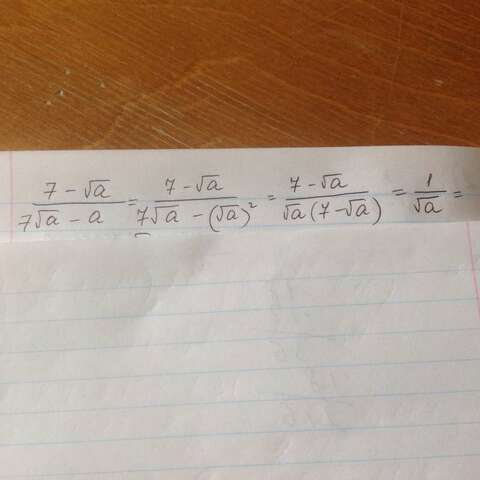 (7 - √a)/(7√a - a) = (7 - √a)/(7√a - (√a)²) = (7 - √a)/(√a(7 - √a)) = 1/√a =